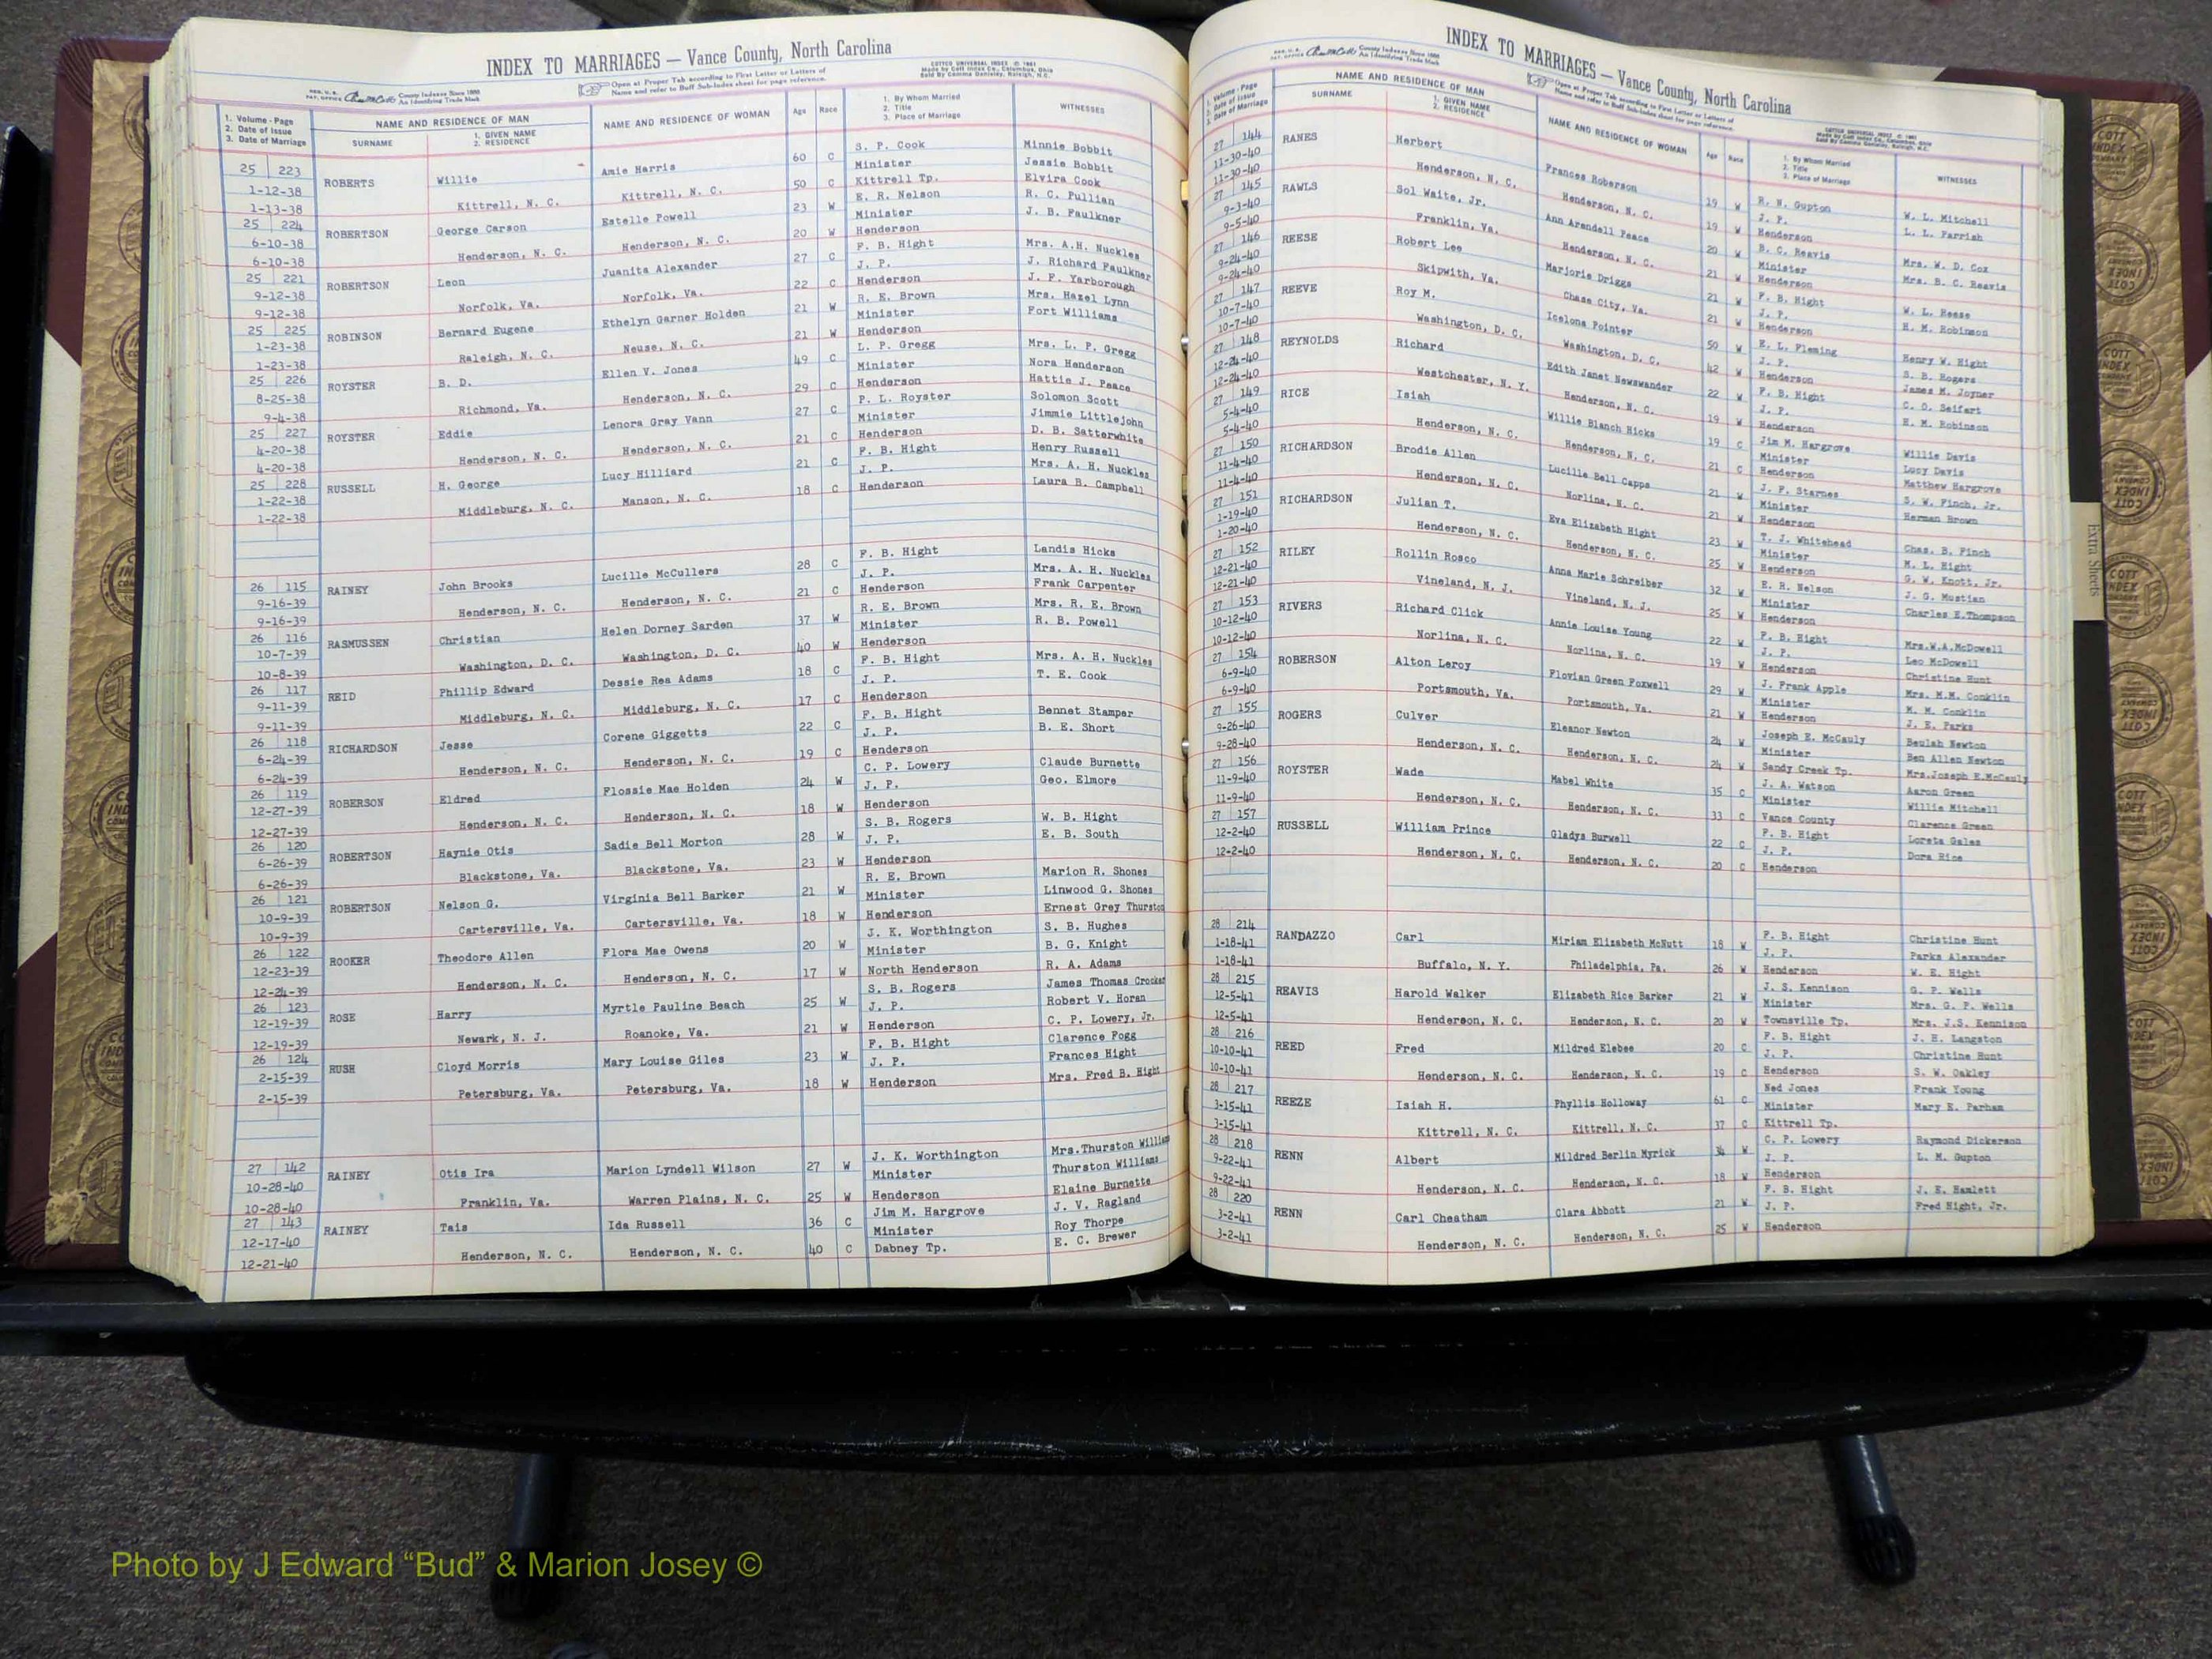 INDEX TO MARRIAGES — Vance County, North Carolina
REG. U. S. PAT. OFFICE County Indexes Since 1888 An Identifying Trade Mark
Open at Proper Tab according to First Letter or Letters of Name and refer to Buff Sub-Index sheet for page reference.
COTTCO UNIVERSAL INDEX © 1961 Made by Cott Index Co., Columbus, Ohio Sold By Comma Danieley, Raleigh, N.C.
1. Volume - Page 2. Date of Issue 3. Date of Marriage NAME AND RESIDENCE OF MAN SURNAME 1. GIVEN NAME 2. RESIDENCE NAME AND RESIDENCE OF WOMAN Age Race 1. By Whom Married 2. Title 3. Place of Marriage WITNESSES
25 223 ROBERTS Willie Amie Harris 60 C S. P. Cook Minnie Bobbit
1-12-38 Minister Jessie Bobbit
1-13-38 Kittrell, N. C. Kittrell, N. C. 50 C Kittrell Tp. Elvira Cook
25 224 ROBERTSON George Carson Estelle Powell 23 W E. R. Nelson R. C. Pullian
6-10-38 Minister J. B. Faulkner
6-10-38 Henderson, N. C. Henderson, N. C. 20 W Henderson
25 221 ROBERTSON Leon Juanita Alexander 27 C F. B. Hight Mrs. A.H. Nuckles
9-12-38 J. P. J. Richard Faulkner
9-12-38 Norfolk, Va. Norfolk, Va. 22 C Henderson J. F. Yarborough
25 225 ROBINSON Bernard Eugene Ethelyn Garner Holden 21 W R. E. Brown Mrs. Hazel Lynn
1-23-38 Minister Fort Williams
1-23-38 Raleigh, N. C. Neuse, N. C. 21 W Henderson
25 226 ROYSTER B. D. Ellen V. Jones 49 C L. P. Gregg Mrs. L. P. Gregg
8-25-38 Minister Nora Henderson
9-4-38 Richmond, Va. Henderson, N. C. 29 C Henderson Hattie J. Peace
25 227 ROYSTER Eddie Lenora Gray Vann 27 C P. L. Royster Solomon Scott
4-20-38 Minister Jimmie Littlejohn
4-20-38 Henderson, N. C. Henderson, N. C. 21 C Henderson D. B. Satterwhite
25 228 RUSSELL H. George Lucy Hilliard 21 C F. B. Hight Henry Russell
1-22-38 J. P. Mrs. A. H. Nuckles
1-22-38 Middleburg, N. C. Manson, N. C. 18 C Henderson Laura B. Campbell
26 115 RAINEY John Brooks Lucille McCullers 28 C F. B. Hight Landis Hicks
9-16-39 J. P. Mrs. A. H. Nuckles
9-16-39 Henderson, N. C. Henderson, N. C. 21 C Henderson Frank Carpenter
26 116 RASMUSSEN Christian Helen Dorney Sarden 37 W R. E. Brown Mrs. R. E. Brown
10-7-39 Minister R. B. Powell
10-8-39 Washington, D. C. Washington, D. C. 40 W Henderson
26 117 REID Phillip Edward Dessie Rea Adams 18 C F. B. Hight Mrs. A. H. Nuckles
9-11-39 J. P. T. E. Cook
9-11-39 Middleburg, N. C. Middleburg, N. C. 17 C Henderson
26 118 RICHARDSON Jesse Corene Giggetts 22 C F. B. Hight Bennet Stamper
6-24-39 J. P. B. E. Short
6-24-39 Henderson, N. C. Henderson, N. C. 19 C Henderson
26 119 ROBERSON Eldred Flossie Mae Holden 24 W C. P. Lowery Claude Burnette
12-27-39 J. P. Geo. Elmore
12-27-39 Henderson, N. C. Henderson, N. C. 18 W Henderson
26 120 ROBERTSON Haynie Otis Sadie Bell Morton 28 W S. B. Rogers W. B. Hight
6-26-39 J. P. E. B. South
6-26-39 Blackstone, Va. Blackstone, Va. 23 W Henderson
26 121 ROBERTSON Nelson G. Virginia Bell Barker 21 W R. E. Brown Marion R. Shones
10-9-39 Minister Linwood G. Shones
10-9-39 Cartersville, Va. Cartersville, Va. 18 W Henderson Ernest Grey Thurston
26 122 ROOKER Theodore Allen Flora Mae Owens 20 W J. K. Worthington S. B. Hughes
12-23-39 Minister B. G. Knight
12-24-39 Henderson, N. C. Henderson, N. C. 17 W North Henderson R. A. Adams
26 123 ROSE Harry Myrtle Pauline Beach 25 W S. B. Rogers James Thomas Crocker
12-19-39 J. P. Robert V. Horan
12-19-39 Newark, N. J. Roanoke, Va. 21 W Henderson C. P. Lowery, Jr.
26 124 RUSH Cloyd Morris Mary Louise Giles 23 W F. B. Hight Clarence Fogg
2-15-39 J. P. Frances Hight
2-15-39 Petersburg, Va. Petersburg, Va. 18 W Henderson Mrs. Fred B. Hight
27 142 RAINEY Otis Ira Marion Lyndell Wilson 27 W J. K. Worthington Mrs.Thurston William
10-28-40 Minister Thurston Williams
10-28-40 Franklin, Va. Warren Plains, N. C. 25 W Henderson Elaine Burnette
27 143 RAINEY Tais Ida Russell 36 C Jim M. Hargrove J. V. Ragland
12-17-40 Minister Roy Thorpe
12-21-40 Henderson, N. C. Henderson, N. C. 40 C Dabney Tp. E. C. Brewer
INDEX TO MARRIAGES — Vance County, North Carolina
REG. U. S. PAT. OFFICE County Indexes Since 1888 An Identifying Trade Mark
Open at Proper Tab according to First Letter or Letters of Name and refer to Buff Sub-Index sheet for page reference.
COTTCO UNIVERSAL INDEX © 1961 Made by Cott Index Co., Columbus, Ohio Sold By Comma Danieley, Raleigh, N.C.
1. Volume - Page 2. Date of Issue 3. Date of Marriage NAME AND RESIDENCE OF MAN SURNAME 1. GIVEN NAME 2. RESIDENCE NAME AND RESIDENCE OF WOMAN Age Race 1. By Whom Married 2. Title 3. Place of Marriage WITNESSES
27 144 RANES Herbert Frances Roberson 19 W R. N. Gupton W. L. Mitchell
11-30-40 J. P. L. L. Parrish
11-30-40 Henderson, N. C. Henderson, N. C. 19 W Henderson
27 145 RAWLS Sol Waite, Jr. Ann Arendell Peace 20 W B. C. Reavis Mrs. W. D. Cox
9-3-40 Minister Mrs. B. C. Reavis
9-5-40 Franklin, Va. Henderson, N. C. 21 W Henderson
27 146 REESE Robert Lee Marjorie Driggs 21 W F. B. Hight W. L. Reese
9-24-40 J. P. H. M. Robinson
9-24-40 Skipwith, Va. Chase City, Va. 21 W Henderson
27 147 REEVE Roy M. Icelona Pointer 50 W E. L. Fleming Henry W. Hight
10-7-40 J. P. S. B. Rogers
10-7-40 Washington, D. C. Washington, D. C. 42 W Henderson James M. Joyner
27 148 REYNOLDS Richard Edith Janet Newswander 22 W F. B. Hight C. O. Seifert
12-24-40 J. P. H. M. Robinson
12-24-40 Westchester, N. Y. Henderson, N. C. 19 W Henderson
27 149 RICE Isiah Willie Blanch Hicks 19 C Jim M. Hargrove Willie Davis
5-4-40 Minister Lucy Davis
5-4-40 Henderson, N. C. Henderson, N. C. 21 C Henderson Matthew Hargrove
27 150 RICHARDSON Brodie Allen Lucille Bell Capps 21 W J. F. Starnes S. W. Finch, Jr.
11-4-40 Minister Herman Brown
11-4-40 Henderson, N. C. Norlina, N. C. 21 W Henderson
27 151 RICHARDSON Julian T. Eva Elizabeth Hight 23 W T. J. Whitehead Chas. B. Finch
1-19-40 Minister M. L. Hight
1-20-40 Henderson, N. C. Henderson, N. C. 25 W Henderson G. W. Knott, Jr.
27 152 RILEY Rollin Rosco Anna Marie Schreiber 32 W E. R. Nelson J. G. Mustian
12-21-40 Minister Charles E.Thompson
12-21-40 Vineland, N. J. Vineland, N. J. 25 W Henderson
27 153 RIVERS Richard Click Annie Louise Young 22 W F. B. Hight Mrs.W.A.McDowell
10-12-40 J. P. Leo McDowell
10-12-40 Norlina, N. C. Norlina, N. C. 19 W Henderson Christine Hunt
27 154 ROBERSON Alton Leroy Flovian Green Foxwell 29 W J. Frank Apple Mrs. M.M. Conklin
6-9-40 Minister M. M. Conklin
6-9-40 Portsmouth, Va. Portsmouth, Va. 21 W Henderson J. E. Parks
27 155 ROGERS Culver Eleanor Newton 24 W Joseph E. McCauly Beulah Newton
9-26-40 Minister Ben Allen Newton
9-28-40 Henderson, N. C. Henderson, N. C. 24 W Sandy Creek Tp. Mrs.Joseph E.McCauly
27 156 ROYSTER Wade Mabel White 35 C J. A. Watson Aaron Green
11-9-40 Minister Willie Mitchell
11-9-40 Henderson, N. C. Henderson, N. C. 33 C Vance County Clarence Green
27 157 RUSSELL William Prince Gladys Burwell 22 C F. B. Hight Loreta Gales
12-2-40 J. P. Dora Rice
12-2-40 Henderson, N. C. Henderson, N. C. 20 C Henderson
28 214 RANDAZZO Carl Miriam Elizabeth McNutt 18 W F. B. Hight Christine Hunt
1-18-41 J. P. Parks Alexander
1-18-41 Buffalo, N. Y. Philadelphia, Pa. 26 W Henderson W. E. Hight
28 215 REAVIS Harold Walker Elizabeth Rice Barker 21 W J. S. Kennison G. P. Wells
12-5-41 Minister Mrs. G. P. Wells
12-5-41 Henderson, N. C. Henderson, N. C. 20 W Townsville Tp. Mrs. J.S. Kennison
28 216 REED Fred Mildred Elebee 20 C F. B. Hight J. H. Langston
10-10-41 J. P. Christine Hunt
10-10-41 Henderson, N. C. Henderson, N. C. 19 C Henderson S. W. Oakley
28 217 REEZE Isiah H. Phyllis Holloway 61 C Ned Jones Frank Young
3-15-41 Minister Mary E. Parham
3-15-41 Kittrell, N. C. Kittrell, N. C. 37 C Kittrell Tp.
28 218 RENN Albert Mildred Berlin Myrick 34 W C. P. Lowery Raymond Dickerson
9-22-41 J. P. L. M. Gupton
9-22-41 Henderson, N. C. Henderson, N. C. 18 W Henderson
28 220 RENN Carl Cheatham Clara Abbott 21 W F. B. Hight J. E. Hamlett
3-2-41 J. P. Fred Hight, Jr.
3-2-41 Henderson, N. C. Henderson, N. C. 25 W Henderson
Extra Sheets
Photo by J Edward “Bud” & Marion Josey ©